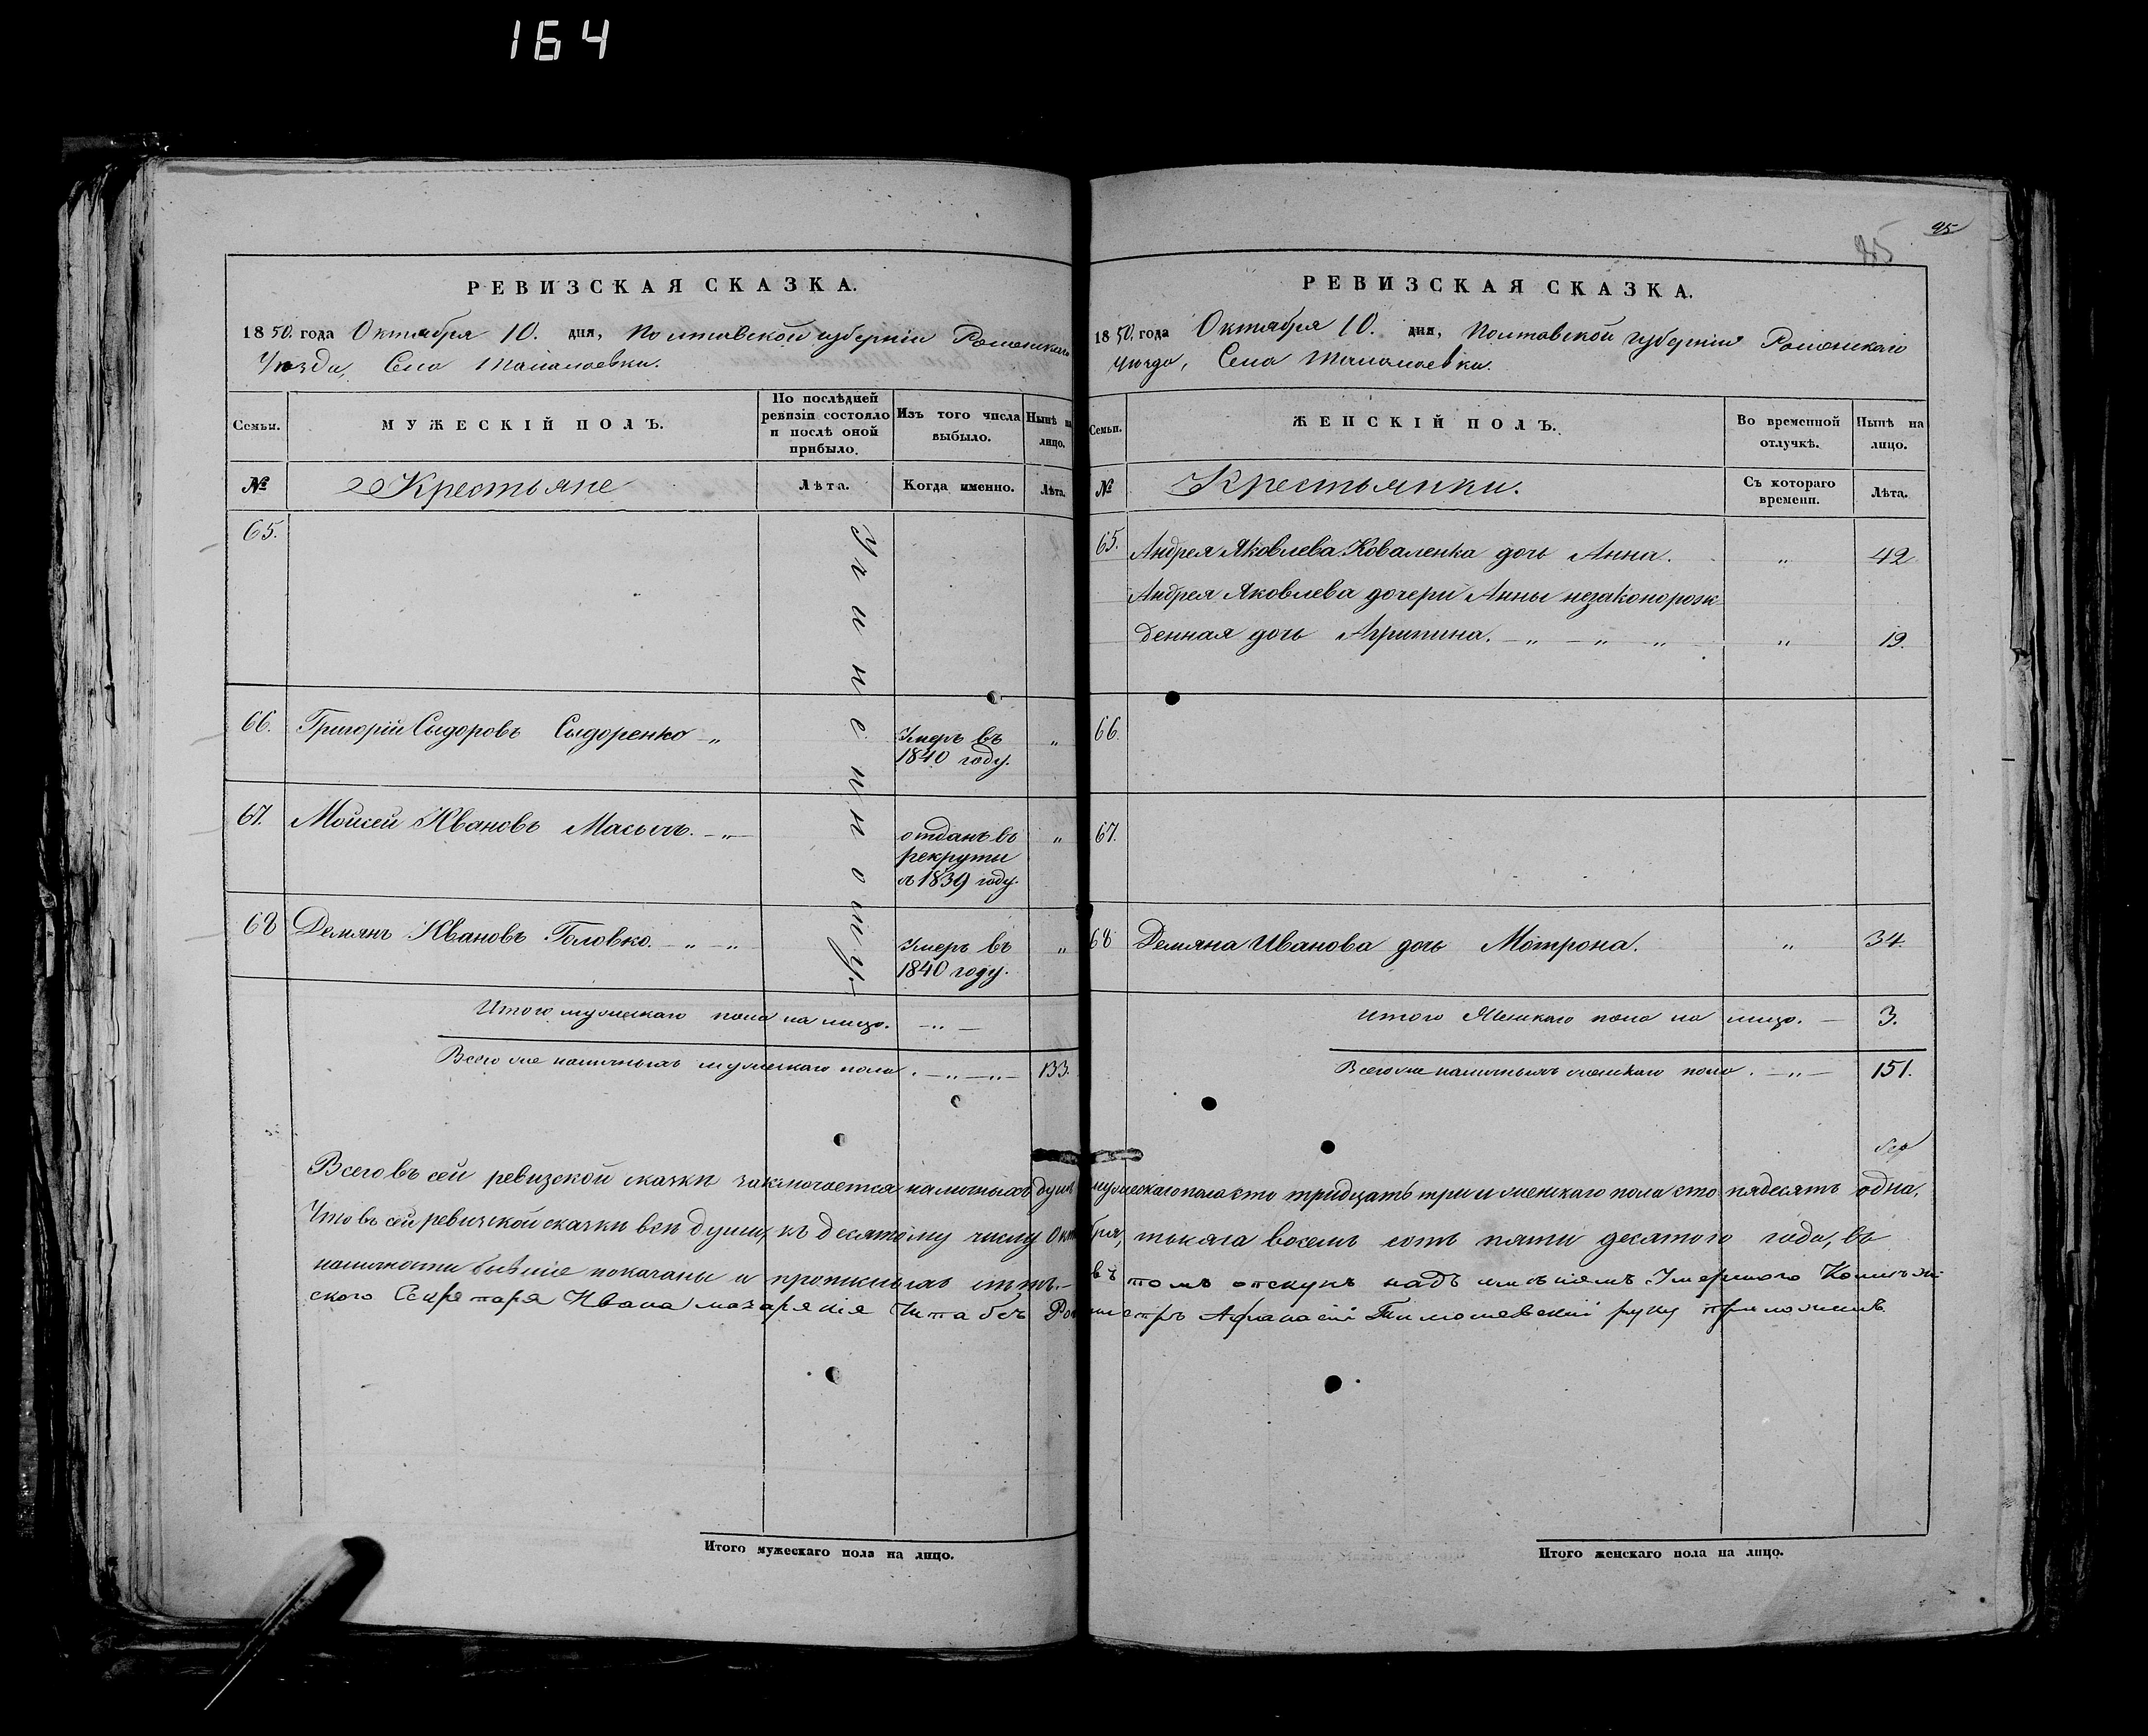 164
95
95
РЕВИЗСКАЯ СКАЗКА.
1850. года Октября 10. дня, Полтавской губерніи Роменскаго
Уѣзда, Села Талалаевки.
Семьи.
МУЖЕСКІЙ ПОЛЪ.
По послѣдней ревизіи состояло и послѣ оной прибыло.
Изъ того числа выбыло.
Нынѣ на лицо.
№
Крестьяне
Лѣта.
Когда именно.
Лѣта.
65.
66. Григорій Сыдоровъ Сыдоренко „ Умеръ въ „
1840 году.
67. Мойсей Ивановъ Масычъ. „ отданъ въ „
рекруты
въ 1839 году.
68 Демянъ Ивановъ Головко. „ „ Умеръ въ „
1840 году.
Итого мужескаго пола на лицо. „
Всего же наличныхъ мужескаго пола. „ „ 133.
РЕВИЗСКАЯ СКАЗКА.
1850. года Октября 10. дня, Полтавской губерніи Роменскаго
Уѣзда, Села Талалаевки.
Семьи.
ЖЕНСКІЙ ПОЛЪ.
Во временной отлучкѣ.
Нынѣ на лицо.
№
Крестьянки.
Съ котораго времени.
Лѣта.
65. Андрея Яковлева Коваленка дочь Анна. „ 42
Андрея Яковлева дочери Анны незаконорож
денная дочь Агрипина. „ „ „ „ 19.
66.
67.
68 Демяна Иванова дочь Мотрона. „ 34.
Итого Женскаго пола на лицо. 3.
Всего же наличныхъ женскаго пола. „ 151.
Всего въ сей ревизской сказки заключается наличныхъ душъ мужескаго пола сто тридцать три и женскаго пола сто пядесять одна.
Что въ сей ревизской сказки всѣ души, къ десятому числу Октября, тысяча восемь сотъ пяти десятого года, въ
наличности бывшіе показаны и прописныхъ нѣтъ. въ томъ опекунъ надъ имѣніемъ Умершого Колежс-
ского Секретаря Ивана Штабсъ Ротмистръ Афанасій руку приложилъ
Итого мужескаго пола на лицо.
Итого женскаго пола на лицо.